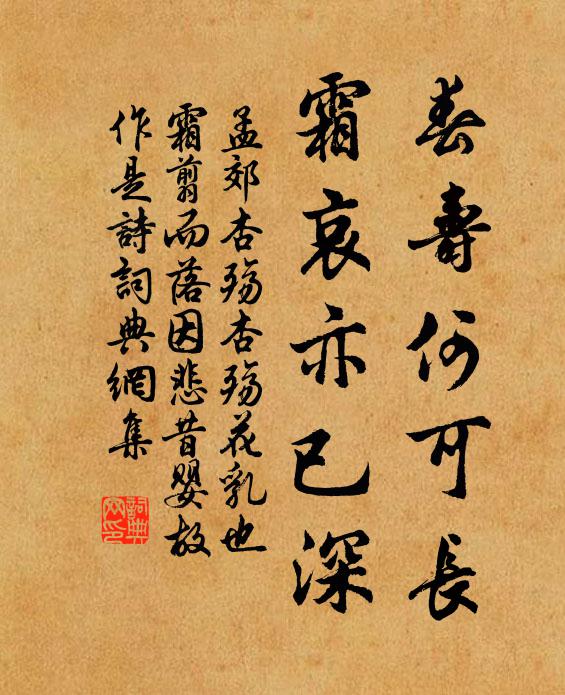 春壽何可長
霜哀亦已深
孟郊杏殤杏殤花乳也
霜翦而落因悲昔嬰故
作是詩詞典網集
詞典